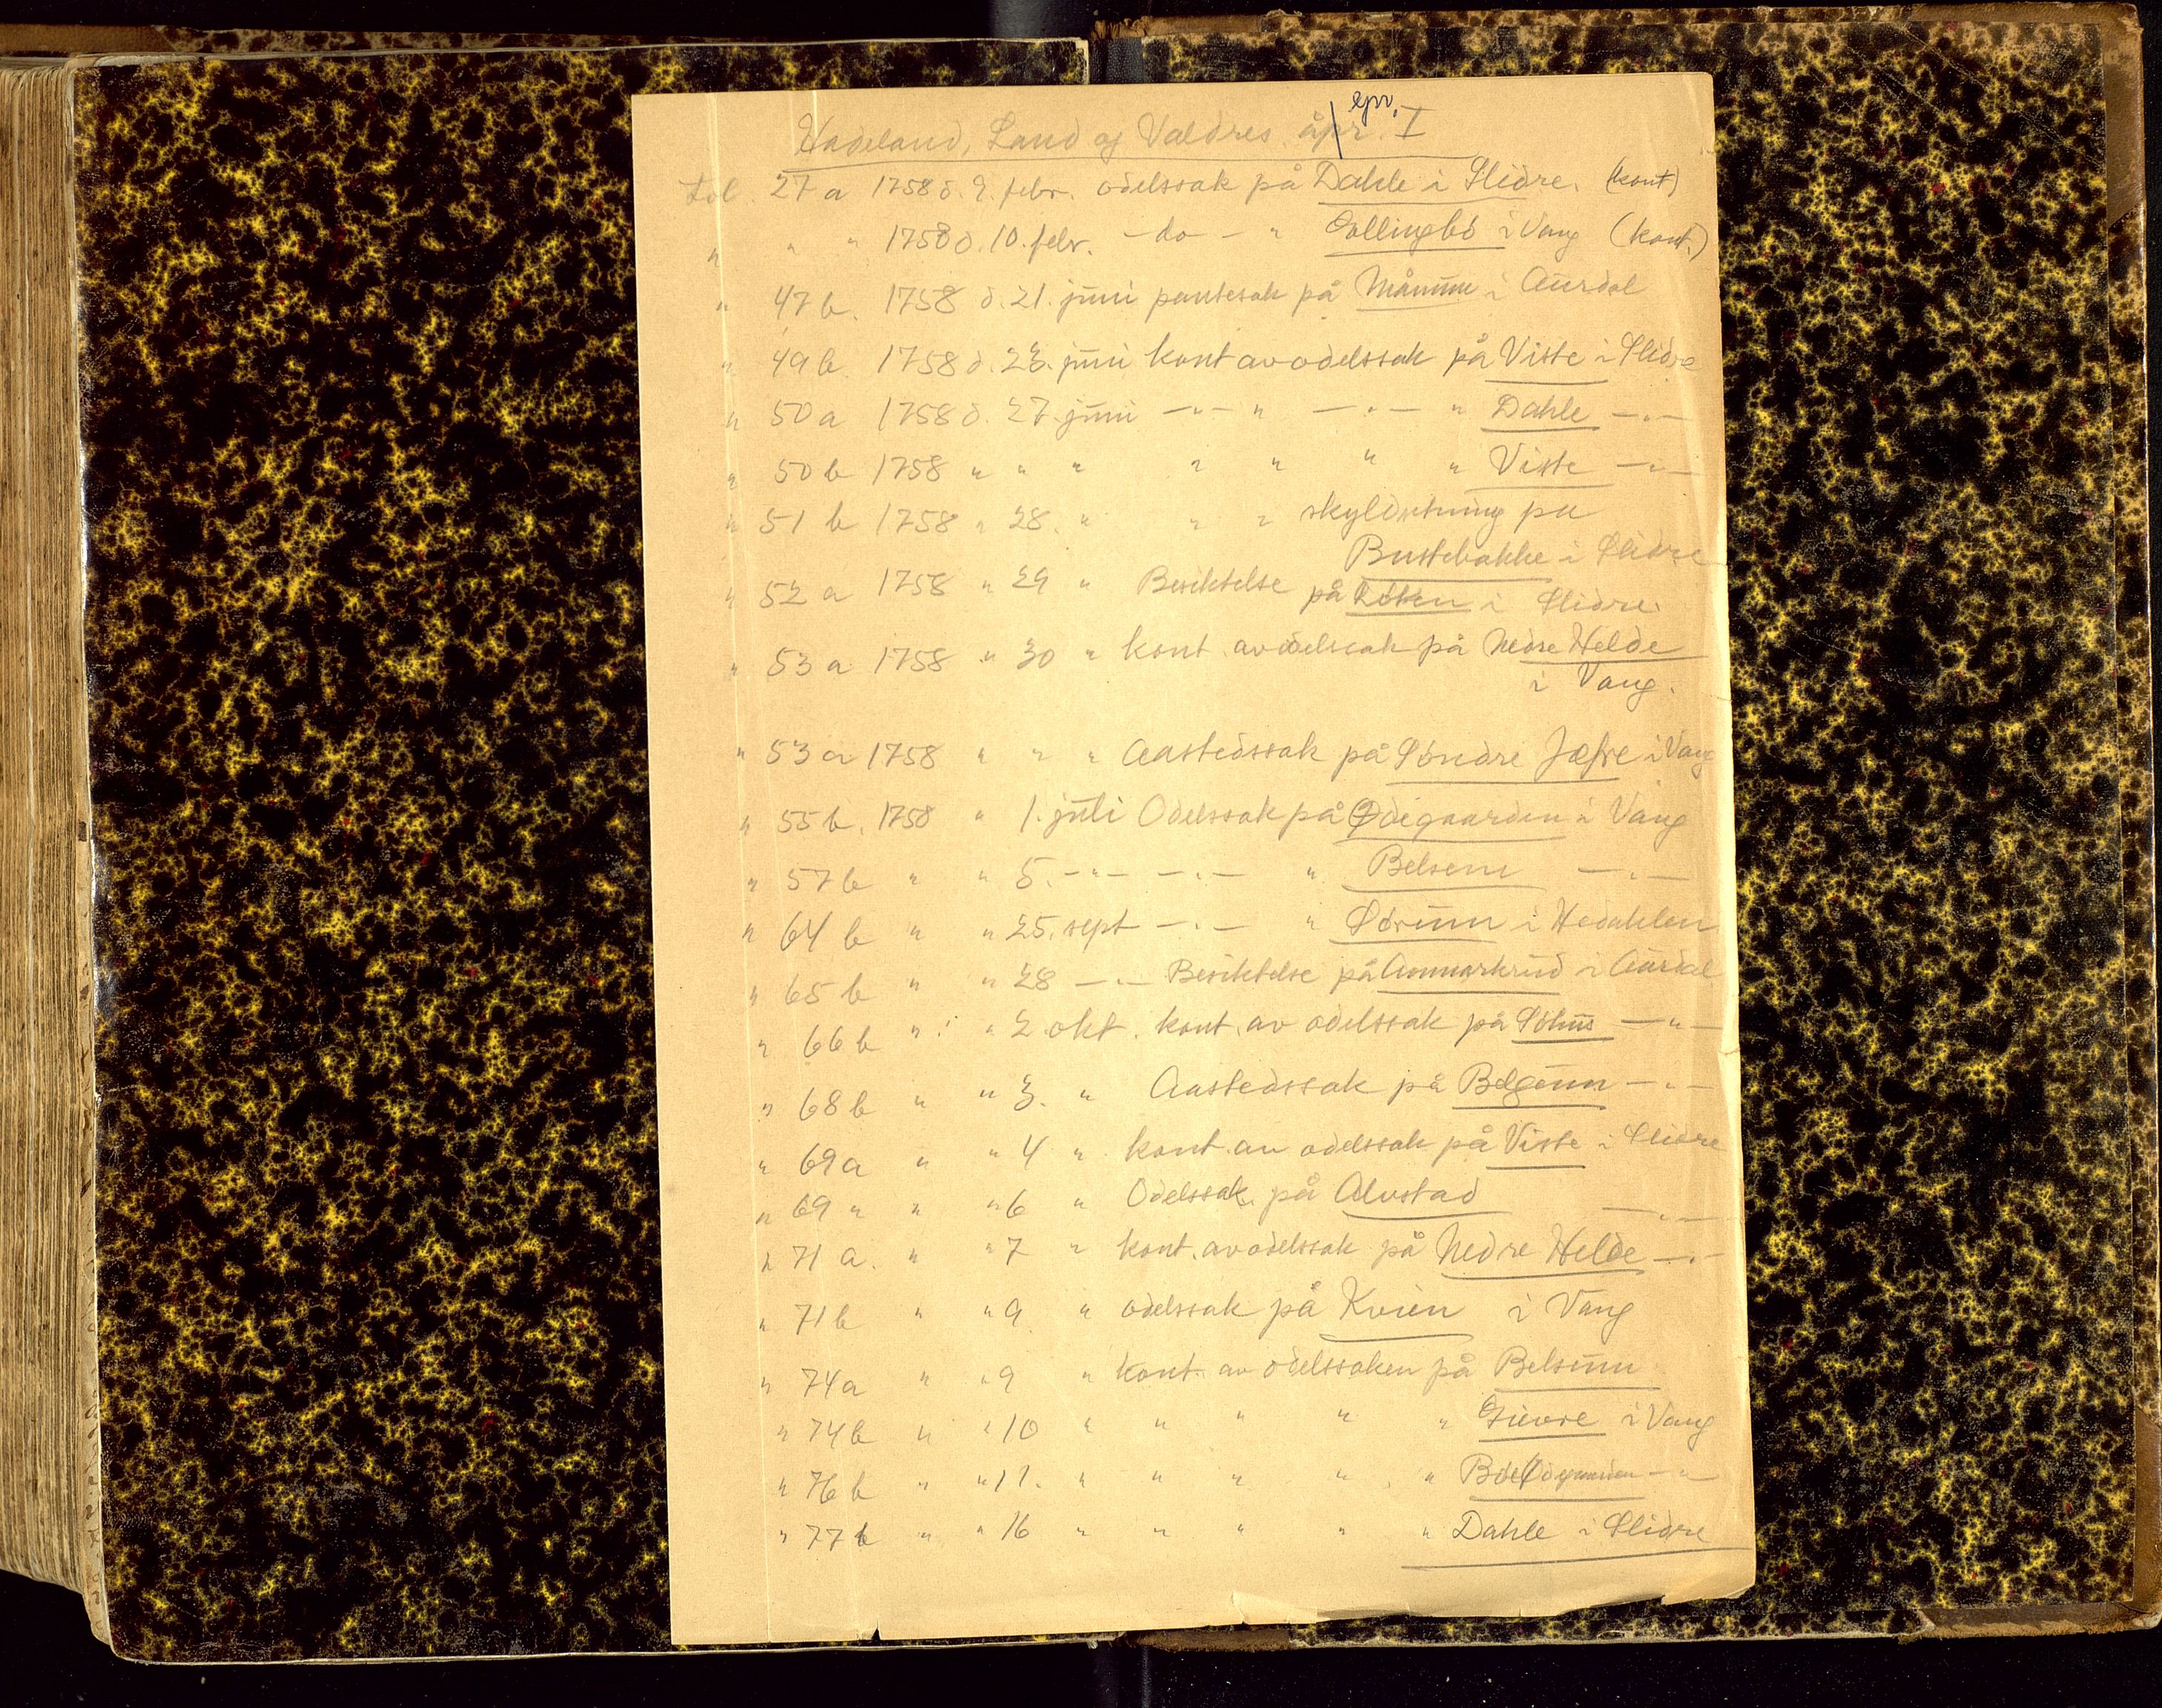 epr.
Hadeland, Land og Valdres åpr. I
Fol. 27 a 1758 d. 9. febr. odelssak på Dahle i Slidre. (kont)
" " " 1758 d. 10. febr. - do - " i Vang (kont.)
" 47 b. 1758 d. 21. juni pantesak på i Aurdal
" 49 b. 1758 d. 23. juni kont av odelssak på Viste i Slidre
" 50 a 1758 d. 27. juni -"- " -"- " Dahle -"-
" 50 b 1758 " " " " " " " Viste -"-
" 51 b 1758 " 28. " " " skyldsetning på
Bustebakke i Slidre
" 52 a 1758 " 29 " Besiktelse på Löken i Slidre.
" 53 a 1758 " 30 " kont av odelssak på Nedre Helde
i Vang.
" 53 a 1758 " " " Aastedssak på Söndre Jæfre i Vang
" 55 b. 1758 " 1. juli Odelssak på Ødegaarden i Vang
" 57 b " " 5. -"- -"- " Belsem -"-
" 64 b " " 25. sept -"- " Sörum i Hedahlen
" 65 b " " 28 -"- Besiktelse på i Aurdal
" 66 b " " 2. okt. kont. av odelssak på -"-
" 68 b " " 3. " Aastedssak på Belgöun -"-
" 69 a " " 4 " kont. av odelssak på Viste i Slidre
" 69 " " " 6 " Odelssak på Alvstad -"-
" 71 a. " " 7 " kont. av odelssak på Nedre Helde -"-
" 71 b " " 9 " odelssak på Kvien i Vang
" 74 a " " 9 " kont. av odelssaken på Belsum
" 74 b " " 10 " " " " " i Vang
" 76 b " " 11. " " " " " -"-
" 77 b " " 16 " " " " " Dahle i Slidre